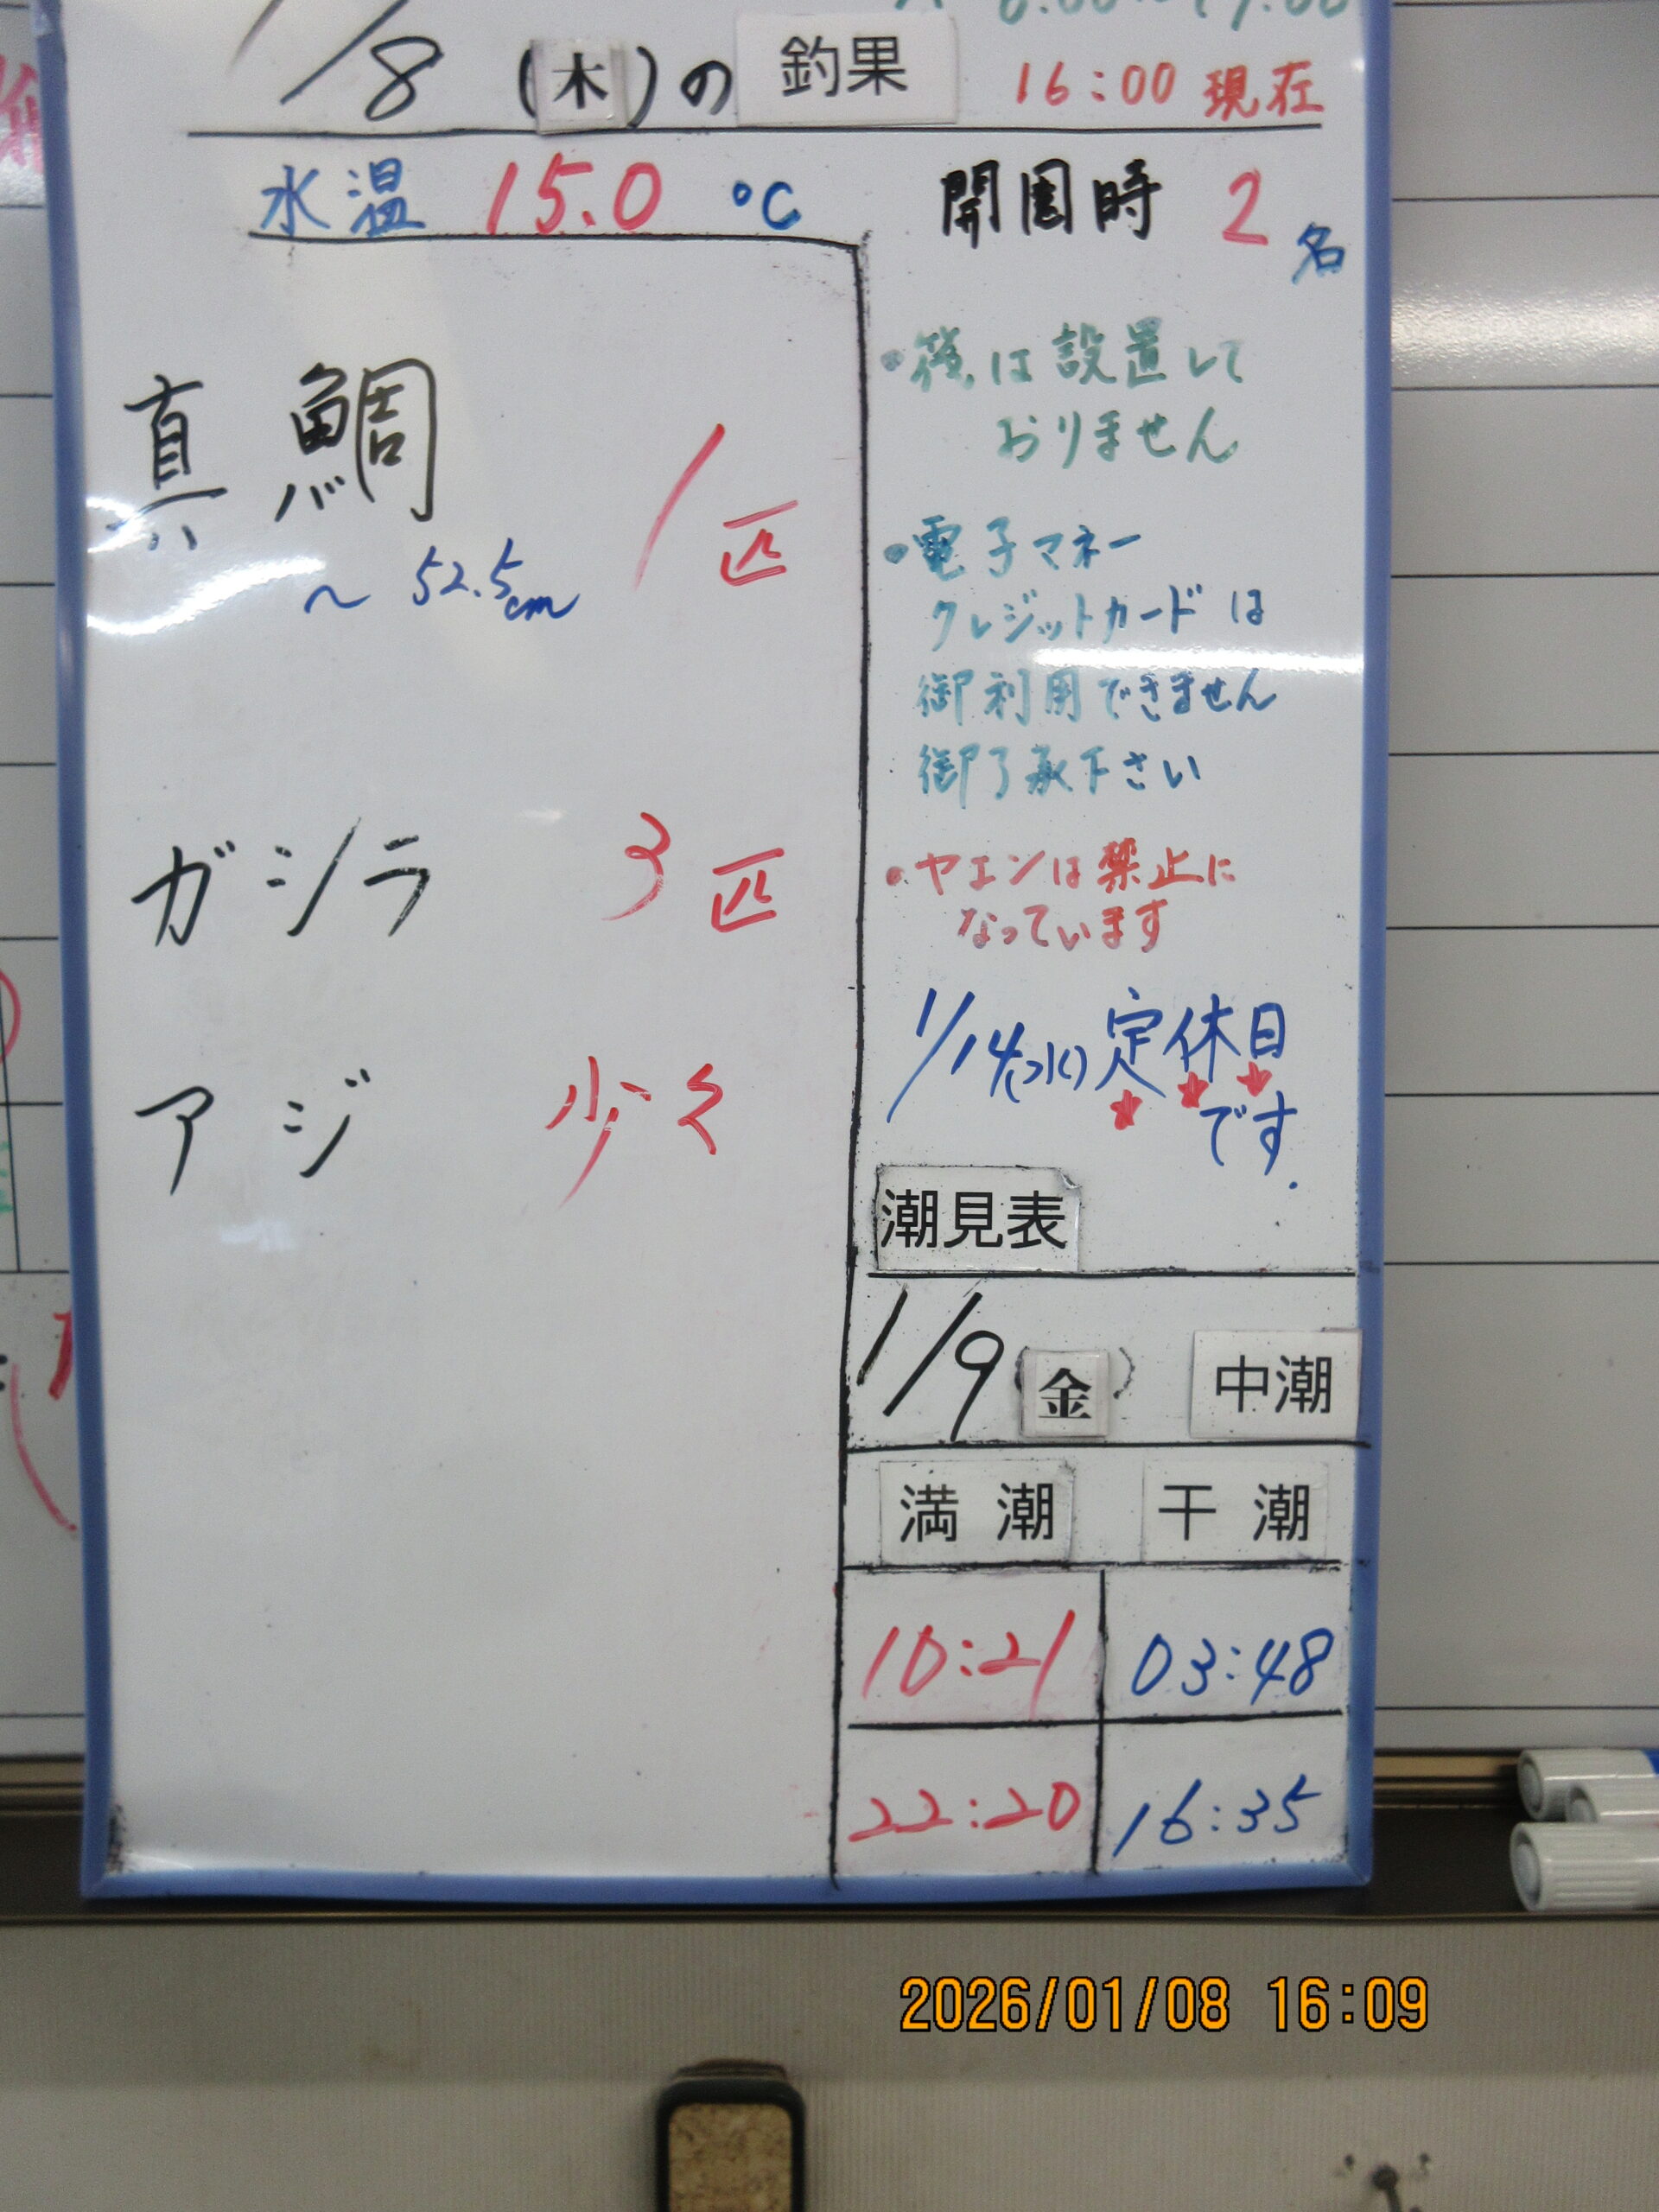 1/8 (木)の 釣果 16:00 現在
水温 15.0 ℃
開園時 2名
真鯛 1匹
～52.5cm
ガシラ 3匹
アジ 少々
は設置して
おりません
・電子マネー
クレジットカードは
御利用できません
御了承下さい
・ヤエンは禁止に
なっています
1/14(水)定休日
です.
潮見表
1/9(金) 中潮
満潮 干潮
10:21 03:48
22:20 16:35
2026/01/08 16:09